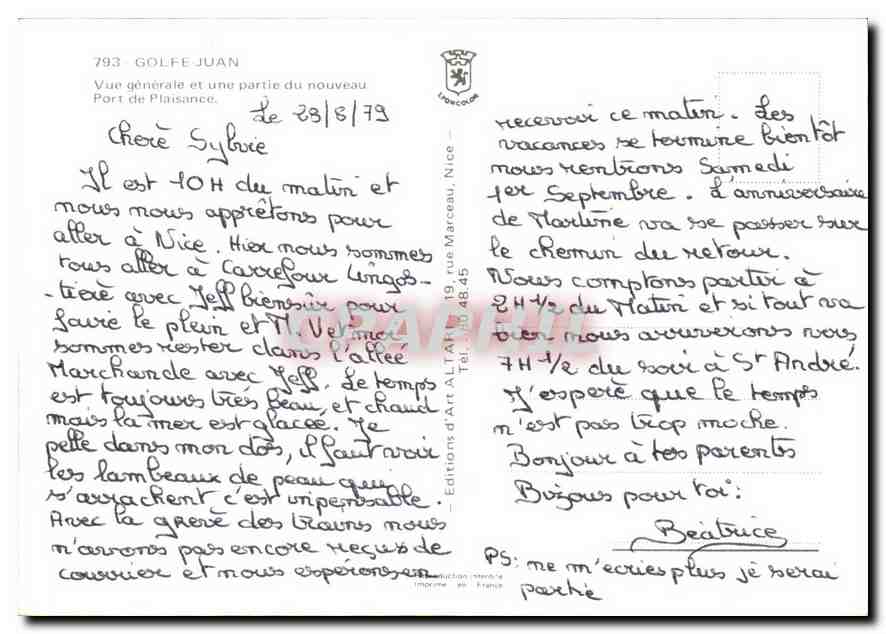 793 - GOLFE-JUAN
Vue générale et une partie du nouveau
Port de Plaisance.
LYONCOLOR
Le 29/8/79
Cherè Sylvie
Il est 10H du matin et
nous nous apprêtons pour
aller à Nice. Hier nous sommes
tous aller à Carrefour Lingos-
-tierè avec Jeff biensûr pour
fairè le plein et M. Vet moi
sommes rester dans l'allée
Marchande avec Jeff. Le temps
est toujours très beau, et chaud
mais la mer est glacée. Je
pelle dans mon dos, il faut voir
les lambeaux de peau qui
s'arrachent c'est inpensable.
Avec la grevè des trains nous
n'avons pas encore reçus de
courrier et nous espérons en
recevoir ce matin. Les
vacances se termine bientôt
nous rentrons Samedi
1er Septembre. L'anniversaire
de Martine va se passer sur
le chemin du retour.
Nous comptons partir à
2H 1/2 du Matin et si tout va
bien nous arriverons vers
7H 1/2 du soir à St André.
J'esperè que le temps
n'est pas trop moche.
Bonjour à tes parents
Bizous pour toi.
Béatrice
PS: ne m'ecries plus jé serai
partie
— Editions d'Art ALTARI 19, rue Marceau, Nice —
Tél. 80 48.45
CPAPHIL
Reproduction interdite
Imprimé en France